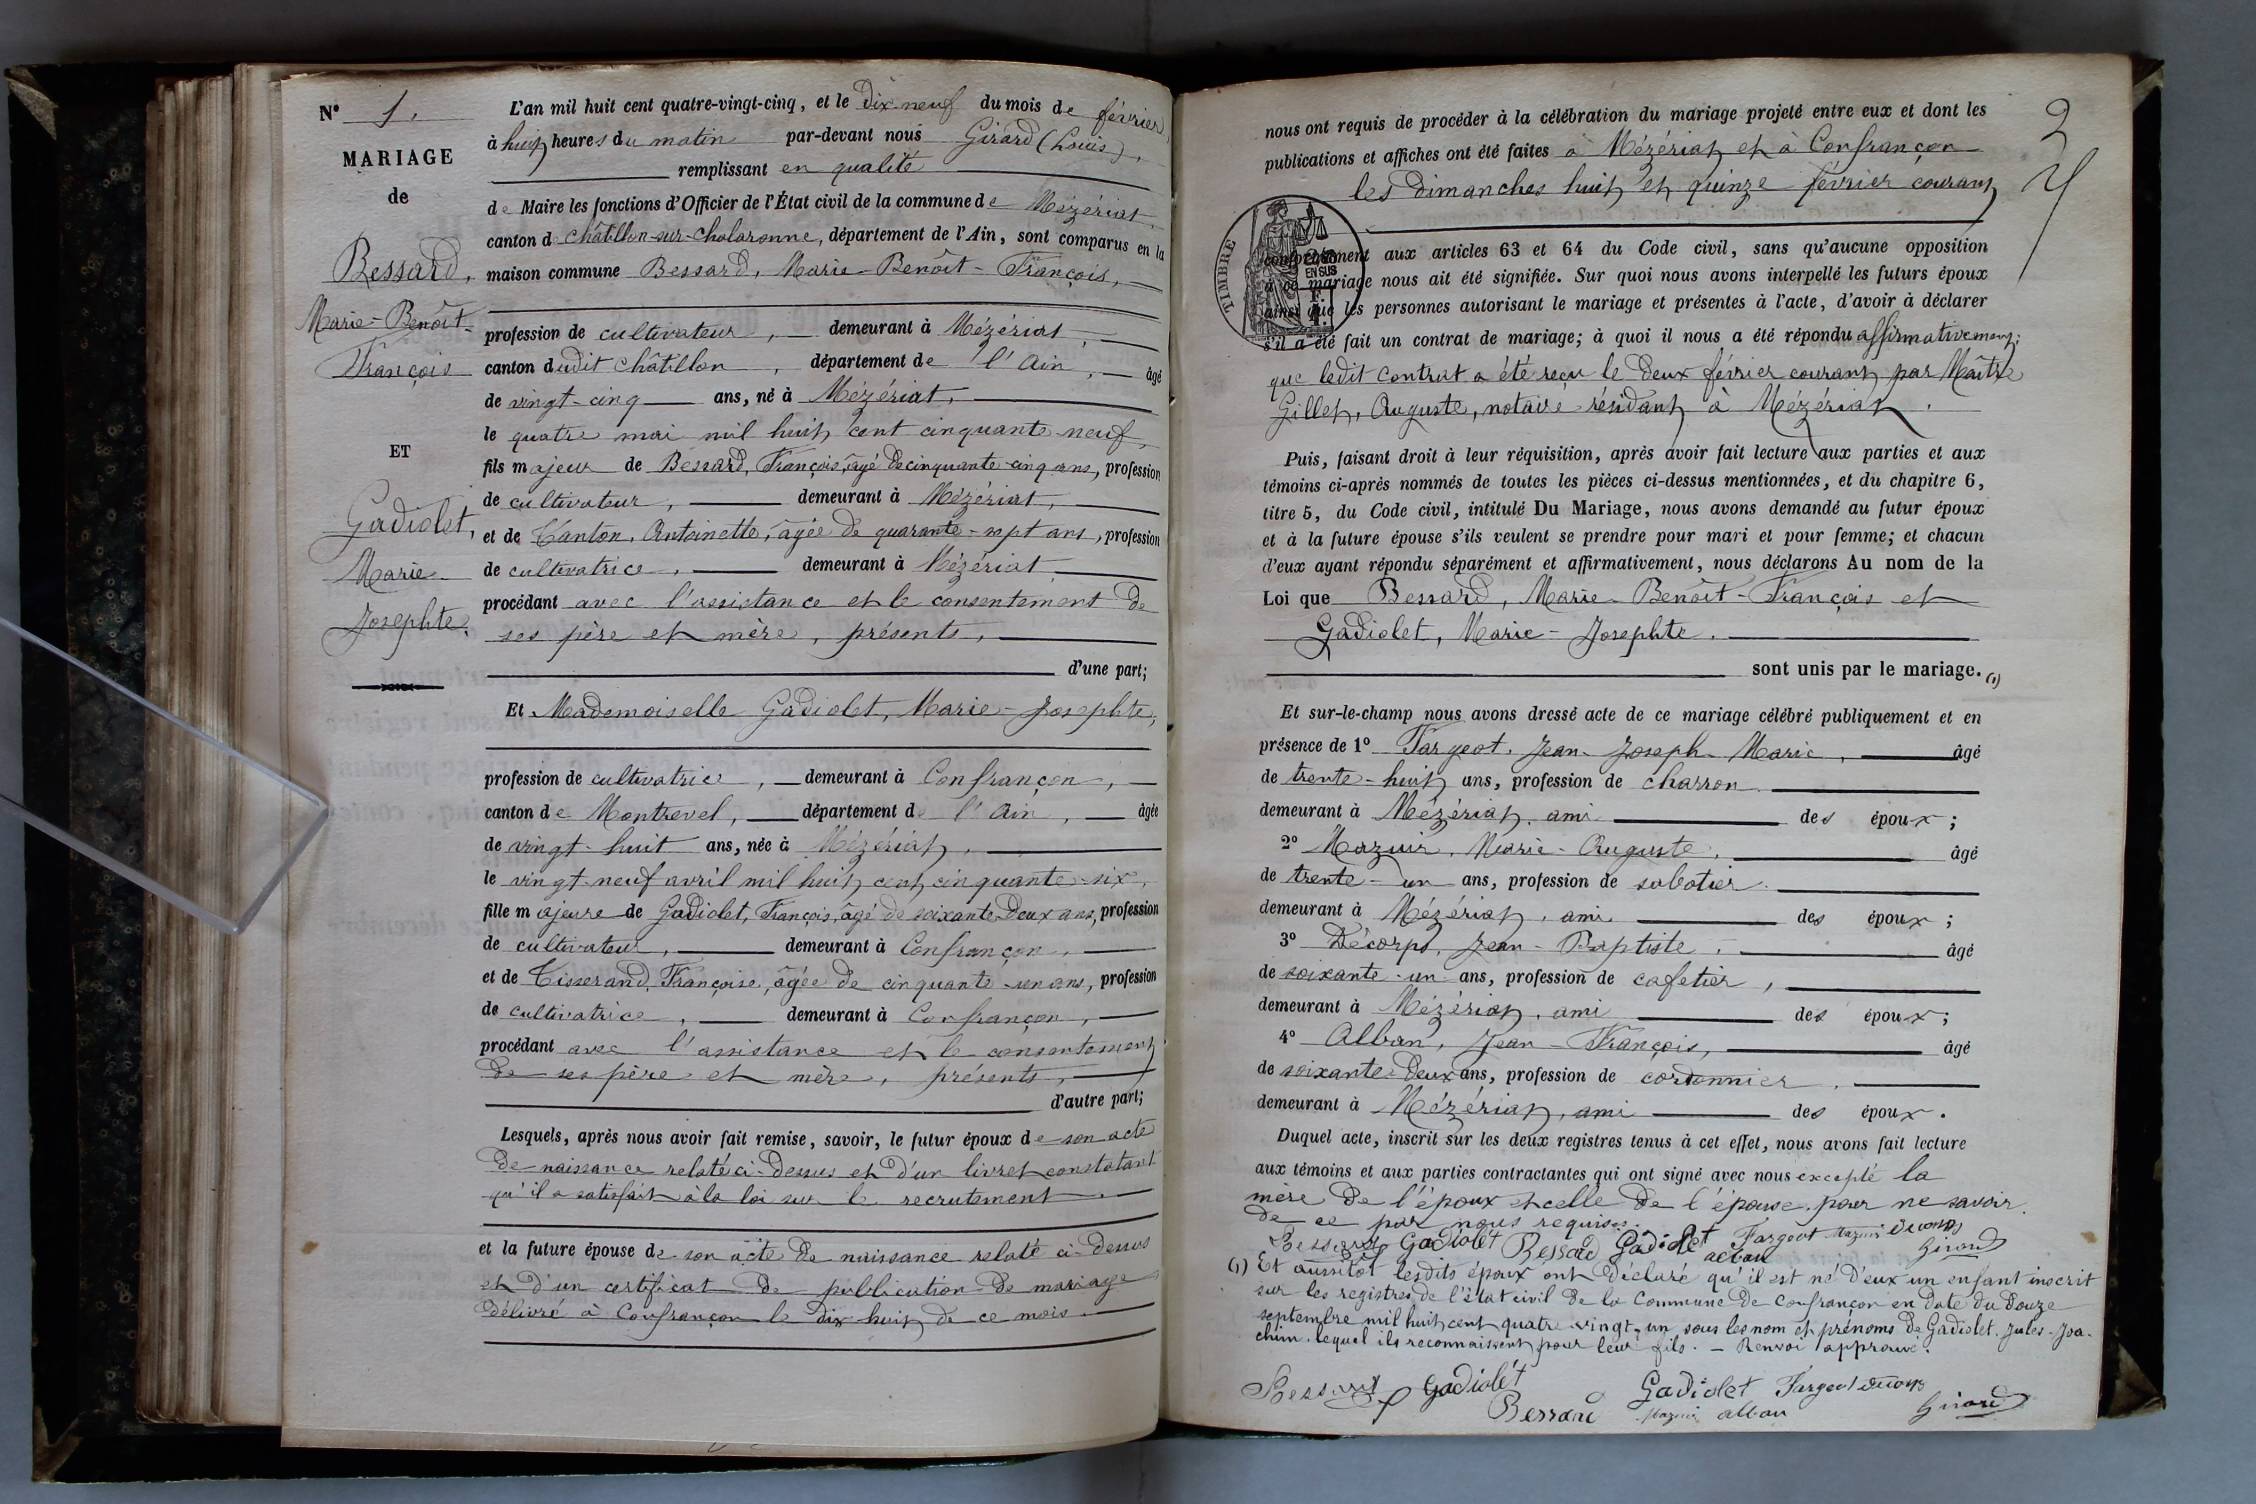 N° 1.
MARIAGE
de
Bessard,
Marie-Benoît-
François
ET
Gadiolet,
Marie-
Josephte.
L'an mil huit cent quatre-vingt-cinq, et le dix-neuf du mois de février
à huit heures du matin par-devant nous Girard (Louis),
remplissant en qualité
de Maire les fonctions d'Officier de l'État civil de la commune de Mézériat,
canton de Châtillon-sur-Chalaronne, département de l'Ain, sont comparus en la
maison commune Bessard, Marie-Benoît-François,
profession de cultivateur, demeurant à Mézériat,
canton dudit Châtillon, département de l'Ain, âgé
de vingt-cinq ans, né à Mézériat,
le quatre mai mil huit cent cinquante-neuf,
fils majeur de Bessard, François, âgé de cinquante-cinq ans, profession
de cultivateur, demeurant à Mézériat,
et de Canton, Antoinette, âgée de quarante-sept ans, profession
de cultivatrice, demeurant à Mézériat,
procédant avec l'assistance et le consentement de
ses père et mère, présents,
d'une part;
Et Mademoiselle Gadiolet, Marie-Josephte,
profession de cultivatrice, demeurant à Confrançon,
canton de Montrevel, département de l'Ain, âgée
de vingt-huit ans, née à Mézériat,
le vingt-neuf avril mil huit cent cinquante-six,
fille majeure de Gadiolet, François, âgé de soixante-deux ans, profession
de cultivateur, demeurant à Confrançon,
et de Tisserand, Françoise, âgée de cinquante-un ans, profession
de cultivatrice, demeurant à Confrançon,
procédant avec l'assistance et le consentement
de ses père et mère, présents,
d'autre part;
Lesquels, après nous avoir fait remise, savoir, le futur époux de son acte
de naissance relaté ci-dessus et d'un livret constatant
qu'il a satisfait à la loi sur le recrutement.
et la future épouse de son acte de naissance relaté ci-dessus
et d'un certificat de publication de mariage
délivré à Confrançon le dix-huit de ce mois.
2
nous ont requis de procéder à la célébration du mariage projeté entre eux et dont les
publications et affiches ont été faites à Mézériat et à Confrançon
les dimanches huit et quinze février courant
TIMBRE
2/10
EN SUS
conformément aux articles 63 et 64 du Code civil, sans qu'aucune opposition
à ce mariage nous ait été signifiée. Sur quoi nous avons interpellé les futurs époux
ainsi que les personnes autorisant le mariage et présentes à l'acte, d'avoir à déclarer
s'il a été fait un contrat de mariage; à quoi il nous a été répondu affirmativement;
que ledit contrat a été reçu le deux février courant par Maître
Gillet, Auguste, notaire résidant à Mézériat.
Puis, faisant droit à leur réquisition, après avoir fait lecture aux parties et aux
témoins ci-après nommés de toutes les pièces ci-dessus mentionnées, et du chapitre 6,
titre 5, du Code civil, intitulé Du Mariage, nous avons demandé au futur époux
et à la future épouse s'ils veulent se prendre pour mari et pour femme; et chacun
d'eux ayant répondu séparément et affirmativement, nous déclarons Au nom de la
Loi que Bessard, Marie-Benoît-François et
Gadiolet, Marie-Josephte.
sont unis par le mariage. (1)
Et sur-le-champ nous avons dressé acte de ce mariage célébré publiquement et en
présence de 1° Fargeot, Jean-Joseph-Marie, âgé
de trente-huit ans, profession de charron
demeurant à Mézériat, ami des époux;
2° Mazuir, Marie-Auguste, âgé
de trente-un ans, profession de sabotier.
demeurant à Mézériat, ami des époux;
3° Décorps, Jean-Baptiste, âgé
de soixante-un ans, profession de cafetier,
demeurant à Mézériat, ami des époux;
4° Alban, Jean-François, âgé
de soixante-deux ans, profession de cordonnier,
demeurant à Mézériat, ami des époux.
Duquel acte, inscrit sur les deux registres tenus à cet effet, nous avons fait lecture
aux témoins et aux parties contractantes qui ont signé avec nous excepté la
mère de l'époux et celle de l'épouse, pour ne savoir
de ce par nous requises.
Bessard Gadiolet Bessard Gadiolet Fargeot Mazuir Décorps
alban Girard
(1) Et aussitôt lesdits époux ont déclaré qu'il est né d'eux un enfant inscrit
sur les registres de l'état civil de la commune de Confrançon en date du douze
septembre mil huit cent quatre-vingt-un sous les nom et prénoms de Gadiolet, Jules-Joa-
chim, lequel ils reconnaissent pour leur fils. - Renvoi approuvé.
Bessard Gadiolet Gadiolet Fargeot Décorps
Bessard Mazuir alban Girard